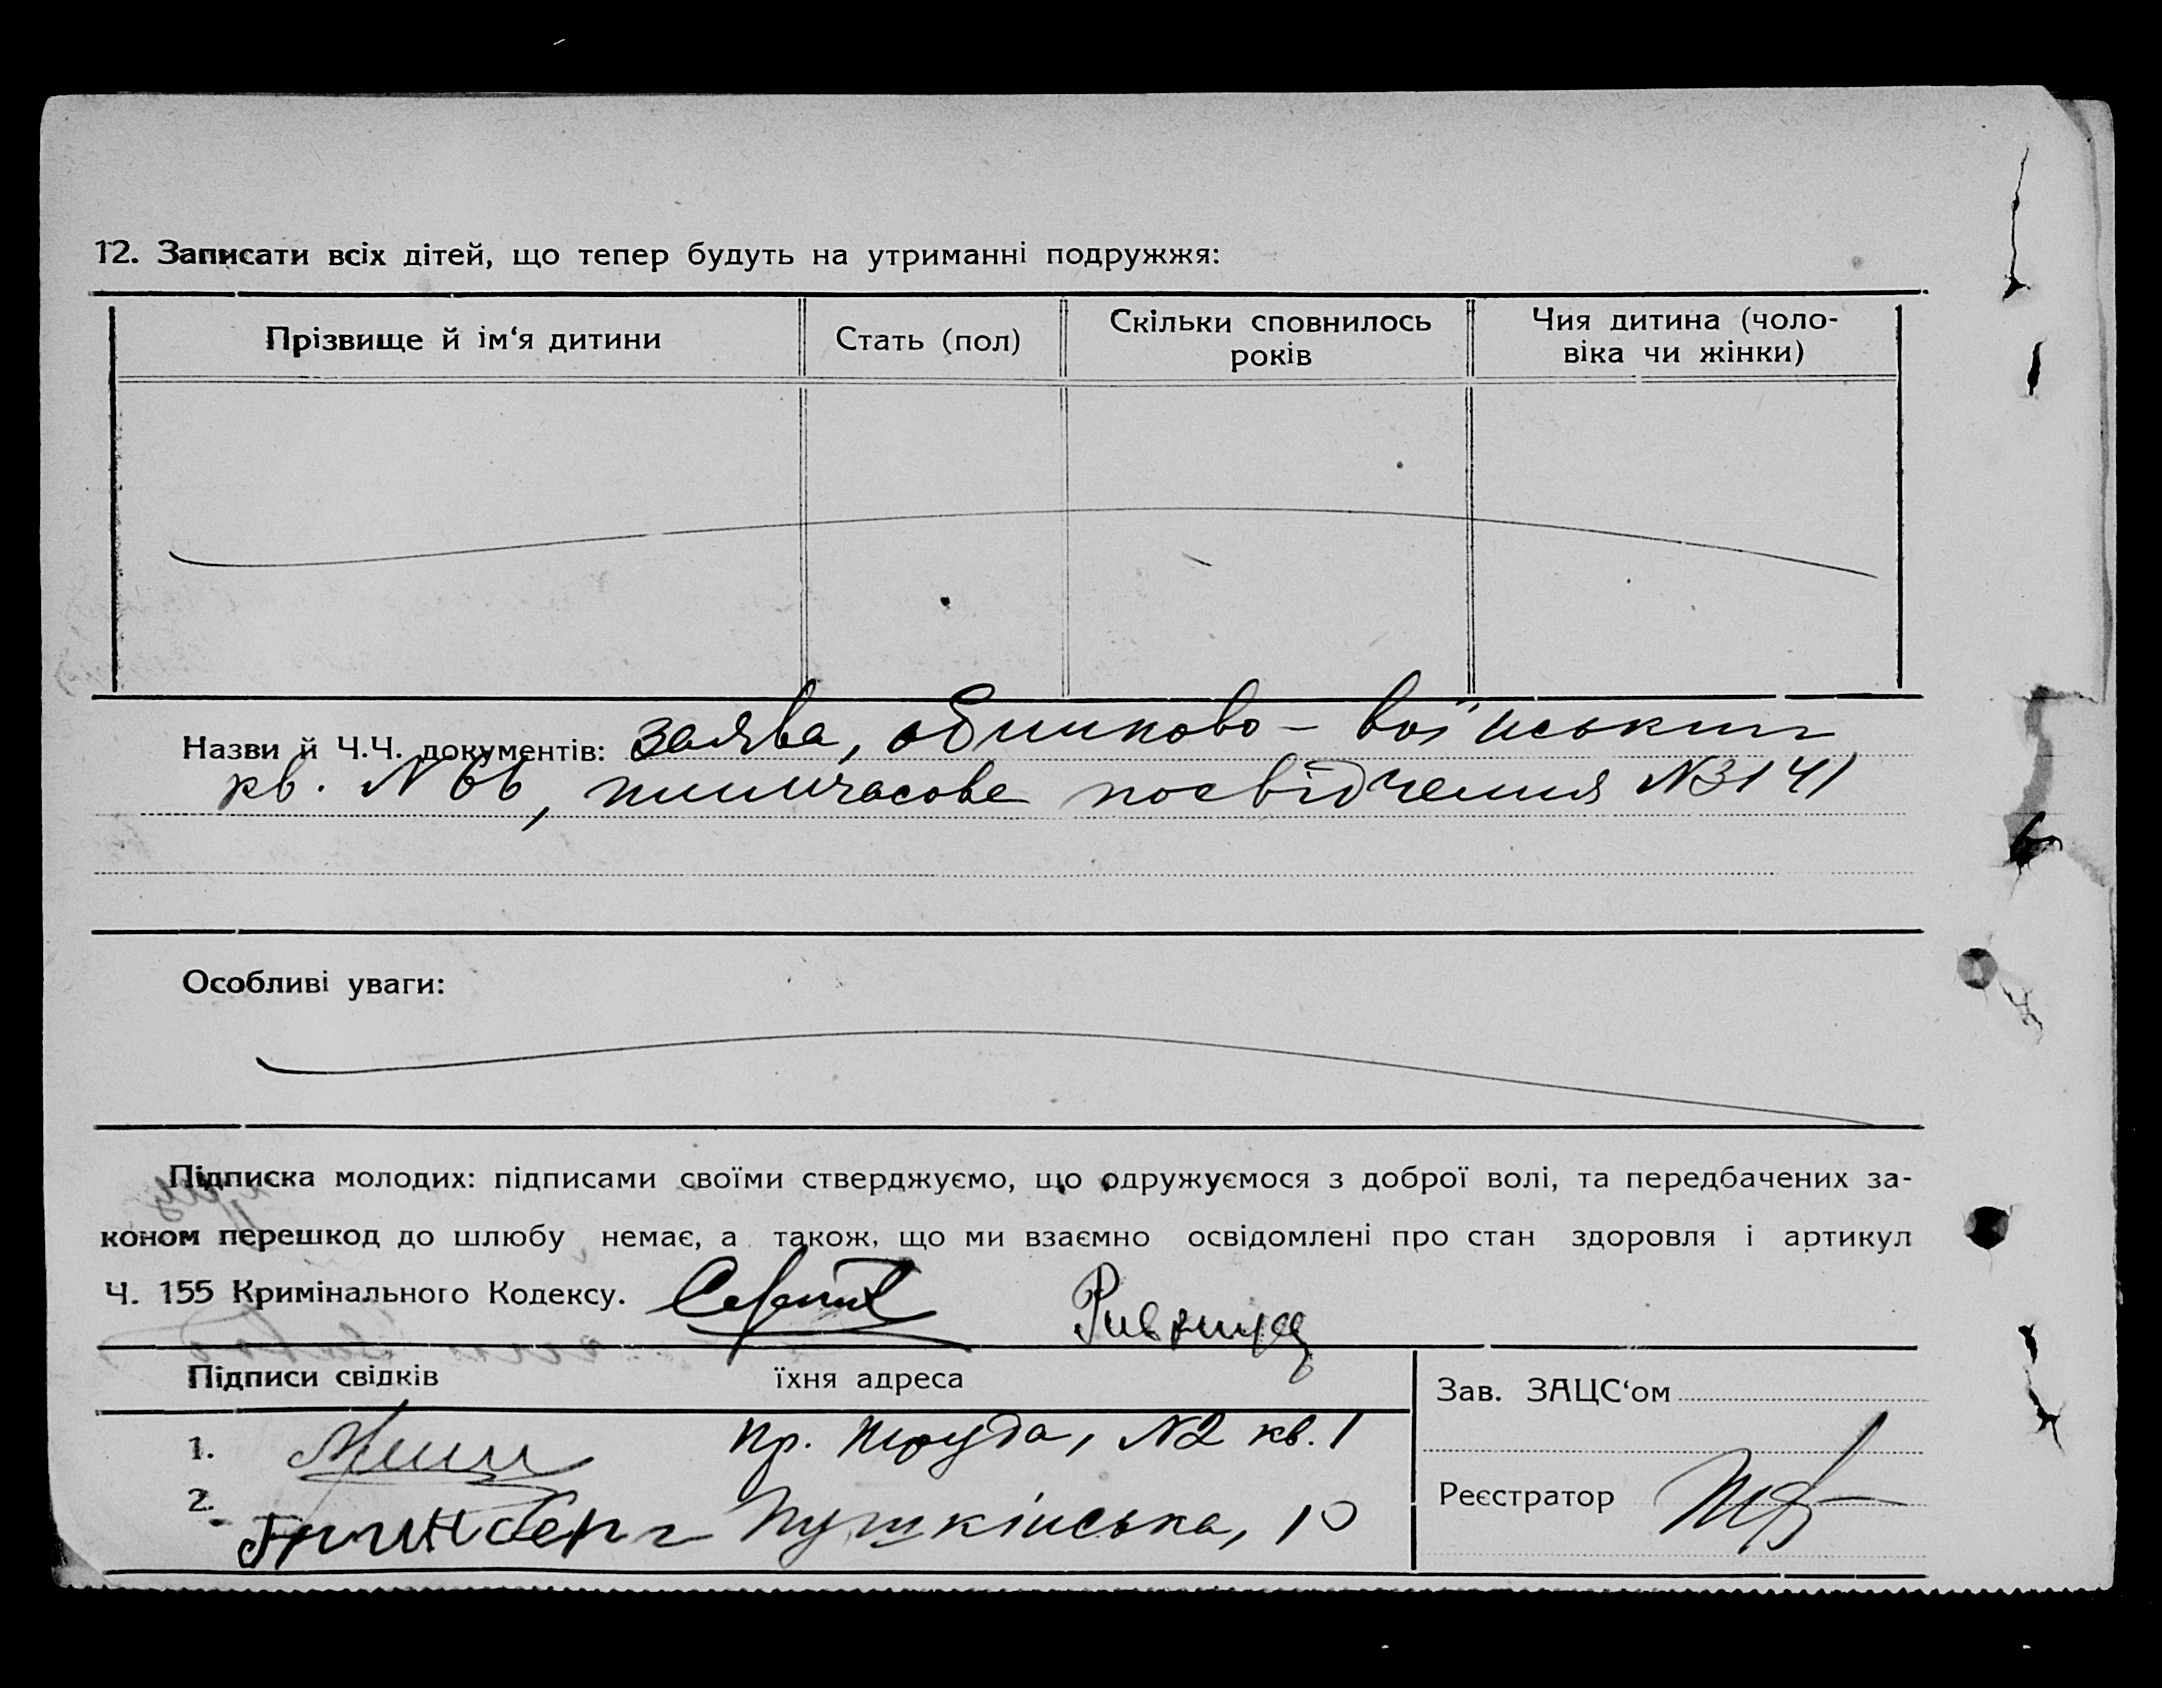 12. Записати всіх дітей, що тепер будуть на утриманні подружжя:
Прізвище й ім‘я дитини
Стать (пол)
Скільки сповнилось
років
Чия дитина (чоло-
віка чи жінки)
Назви й Ч.Ч. документів: заява, обліково – військова
кв. N 66, тимчасове посвідчення N3141
Особливі уваги:
Підписка молодих: підписами своїми стверджуємо, що одружуємося з доброї волі, та передбачених за-
коном перешкод до шлюбу немає, а також, що ми взаємно освідомлені про стан здоровля і артикул
Ч. 155 Кримінального Кодексу.
Підписи свідків їхня адреса
1. пр. Труда, N2 кв. 1
2. Гринберг Пушкінська, 10
Зав. ЗАЦС‘ом
Реєстратор